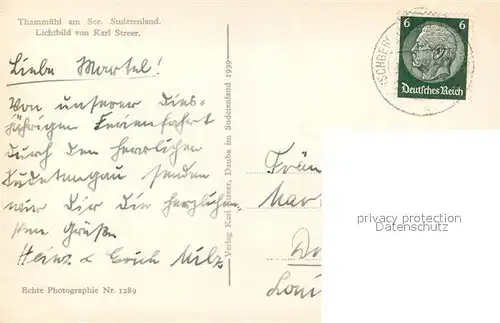 Thammühl am See. Sudetenland.
Lichtbild von Karl Streer.
Liebe Martel!
Von unserer dies-
jährigen Ferienfahrt
durch den herrlichen
Sudetengau senden
wir Dir die herzlichen
Grüße
Heinz & Erich Milz
Echte Photographie Nr. 1289
Verlag Karl Streer, Dauba im Sudetenland 1939
6 6
Deutsches Reich
Mar
privacy protection
Datenschutz